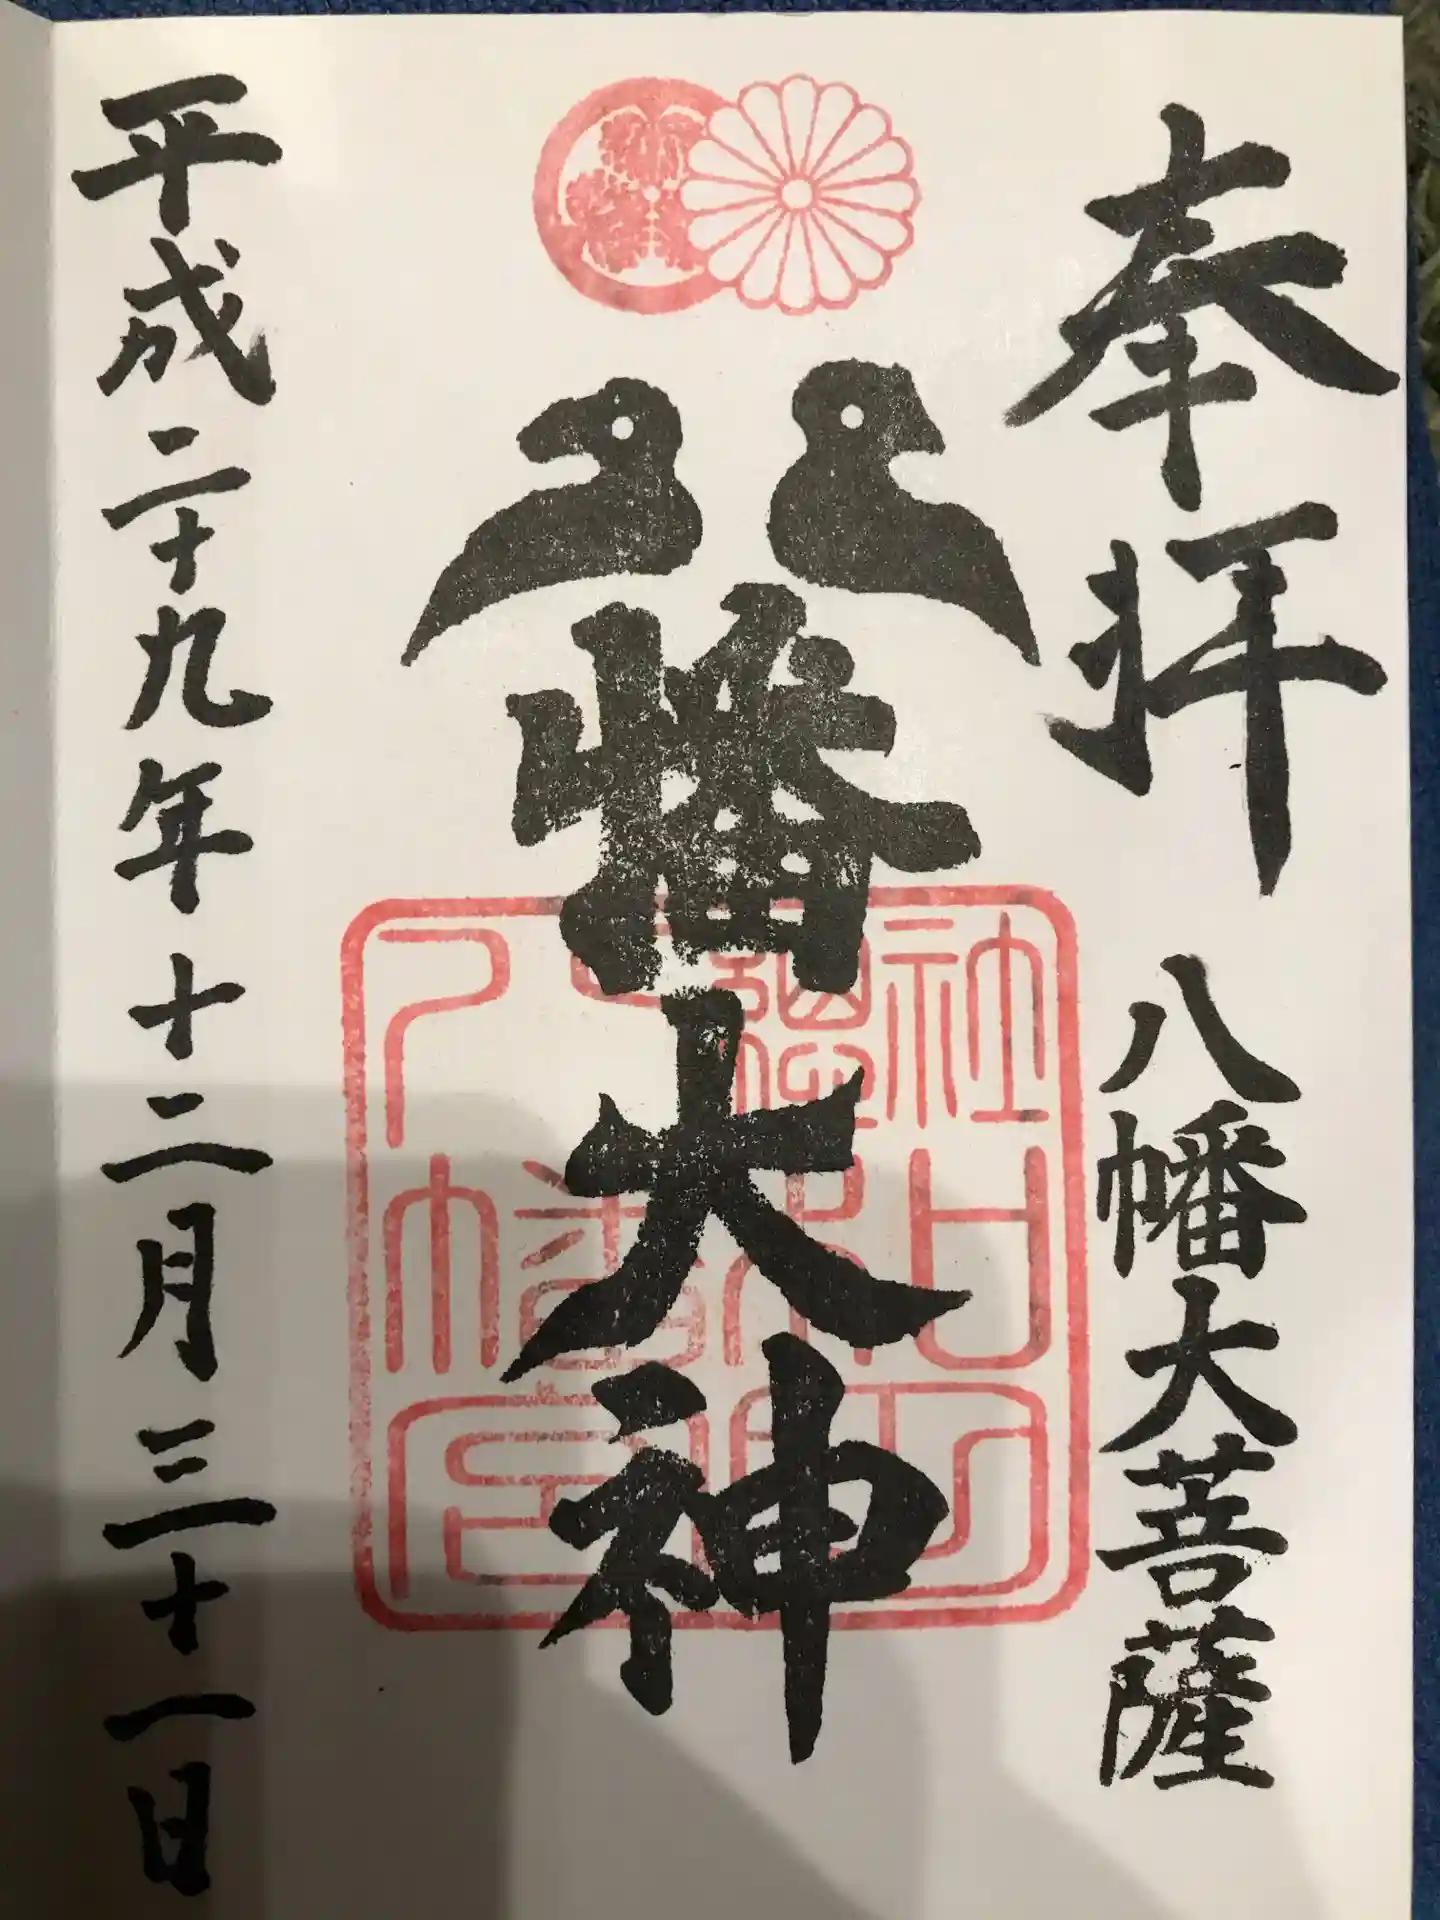 奉拝 八幡大菩薩
八幡大神
平成二十九年十二月三十一日